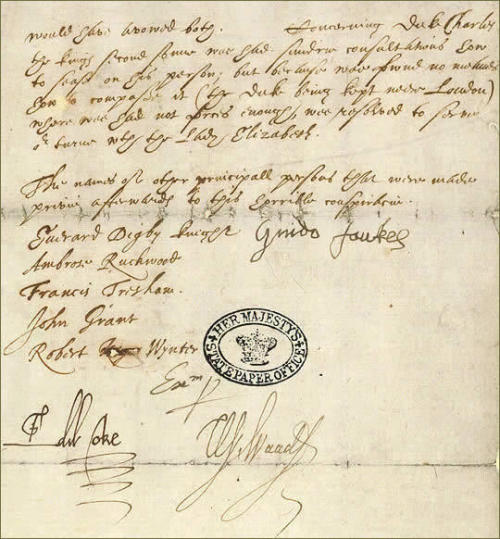 would have avowed both. Concerning Duke Charles
the kings second sonne was had sundrie consultations how
to sease on his person, but because wee fownd no meanes
how to compasse it (the Duke being kept neere London)
where wee had not forces enough, wee resolved to serve
or turne wth the Lady Elizabeth.
The names of other principall persons that were made
privie afterwards to this horrible conspiracie.
Everard Digby knight Guido Faukes
Ambrose Ruckwood
Francis Tresham.
John Grant
Robert Wynter
HER MAJESTY'S
STATE PAPER OFFICE
Exm p
Edw Coke W Waad